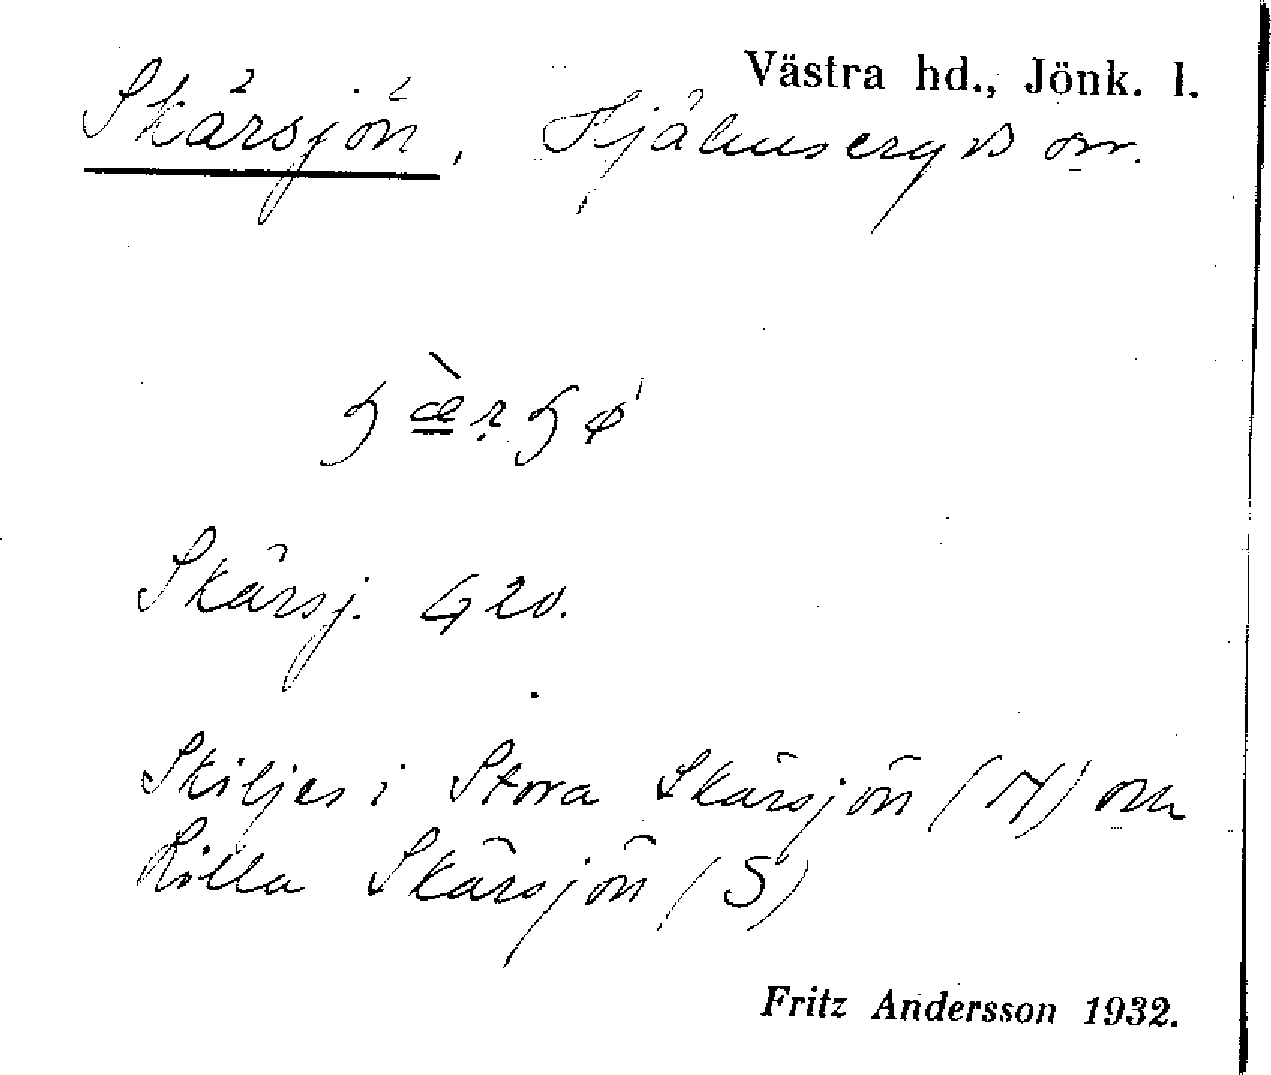 Västra hd., Jönk. l.
Skärsjön, Hjälmseryds sn.
ɧæ̀rɧø
Skärsj. G 20.
Skiljes i Stora Skärsjön (N) om
Lilla Skärsjön (S)
Fritz Andersson 1932.